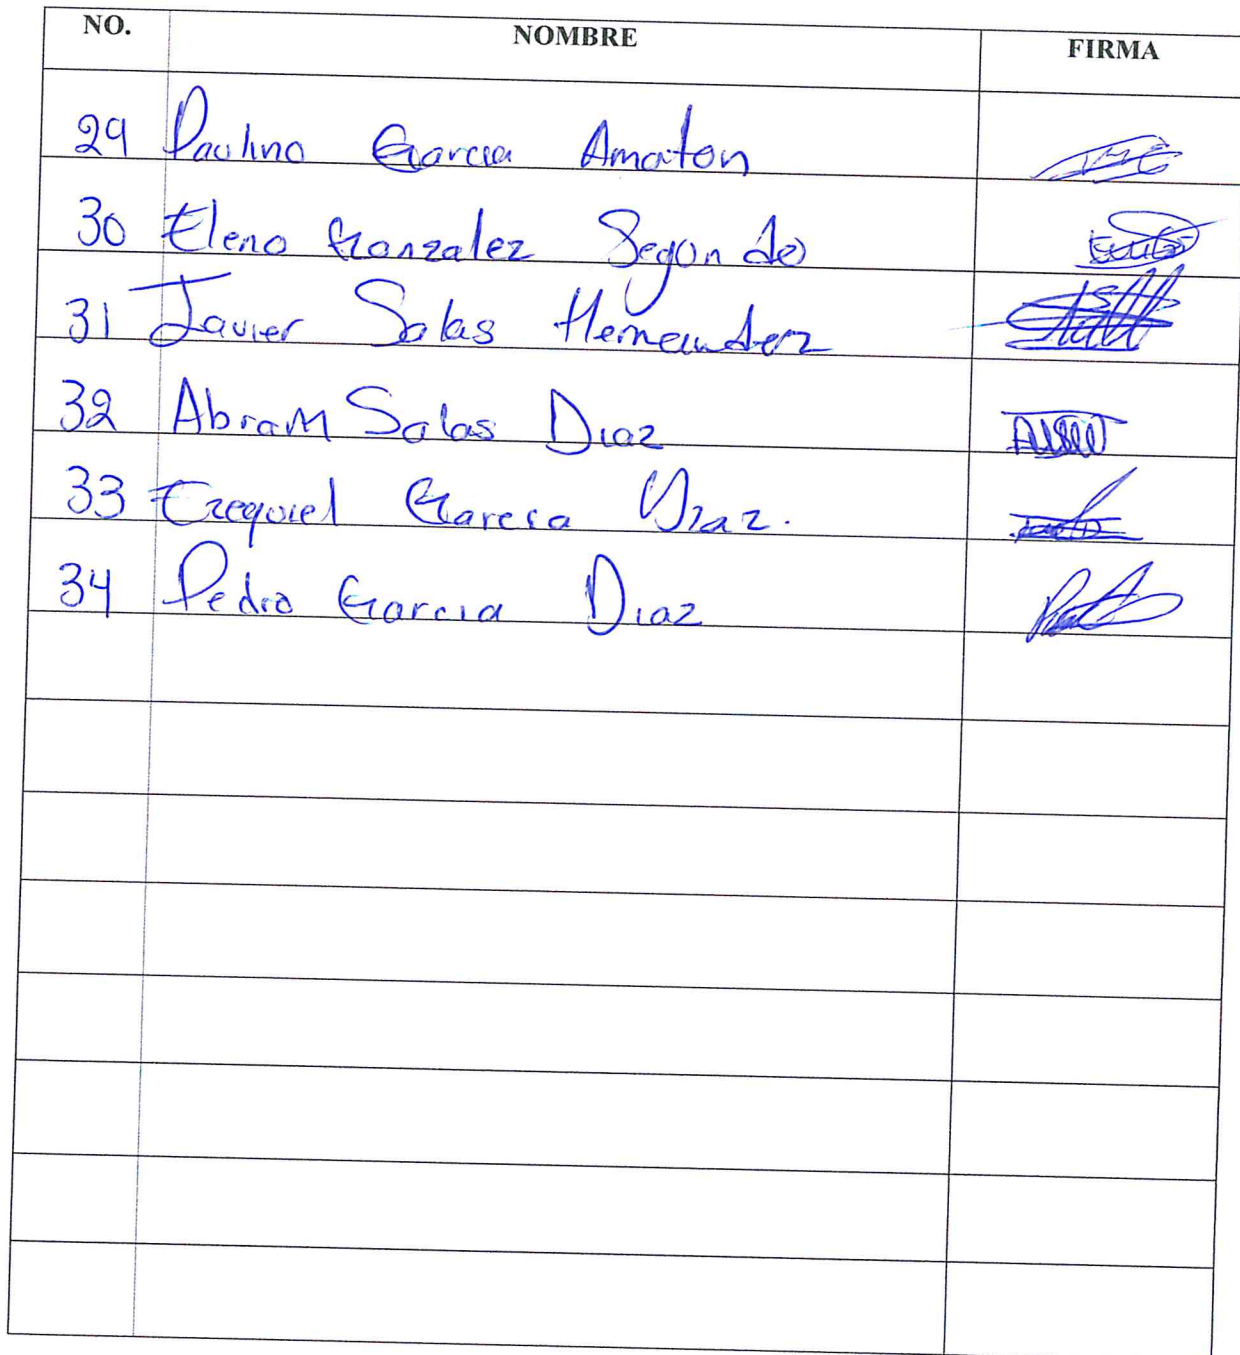 NO. NOMBRE FIRMA
29 Paulino Garcia Amaton
30 Eleno Gonzalez Segundo
31 Javier Salas Hernandez
32 Abram Salas Diaz
33 Ezequiel Garcia Diaz.
34 Pedro Garcia Diaz